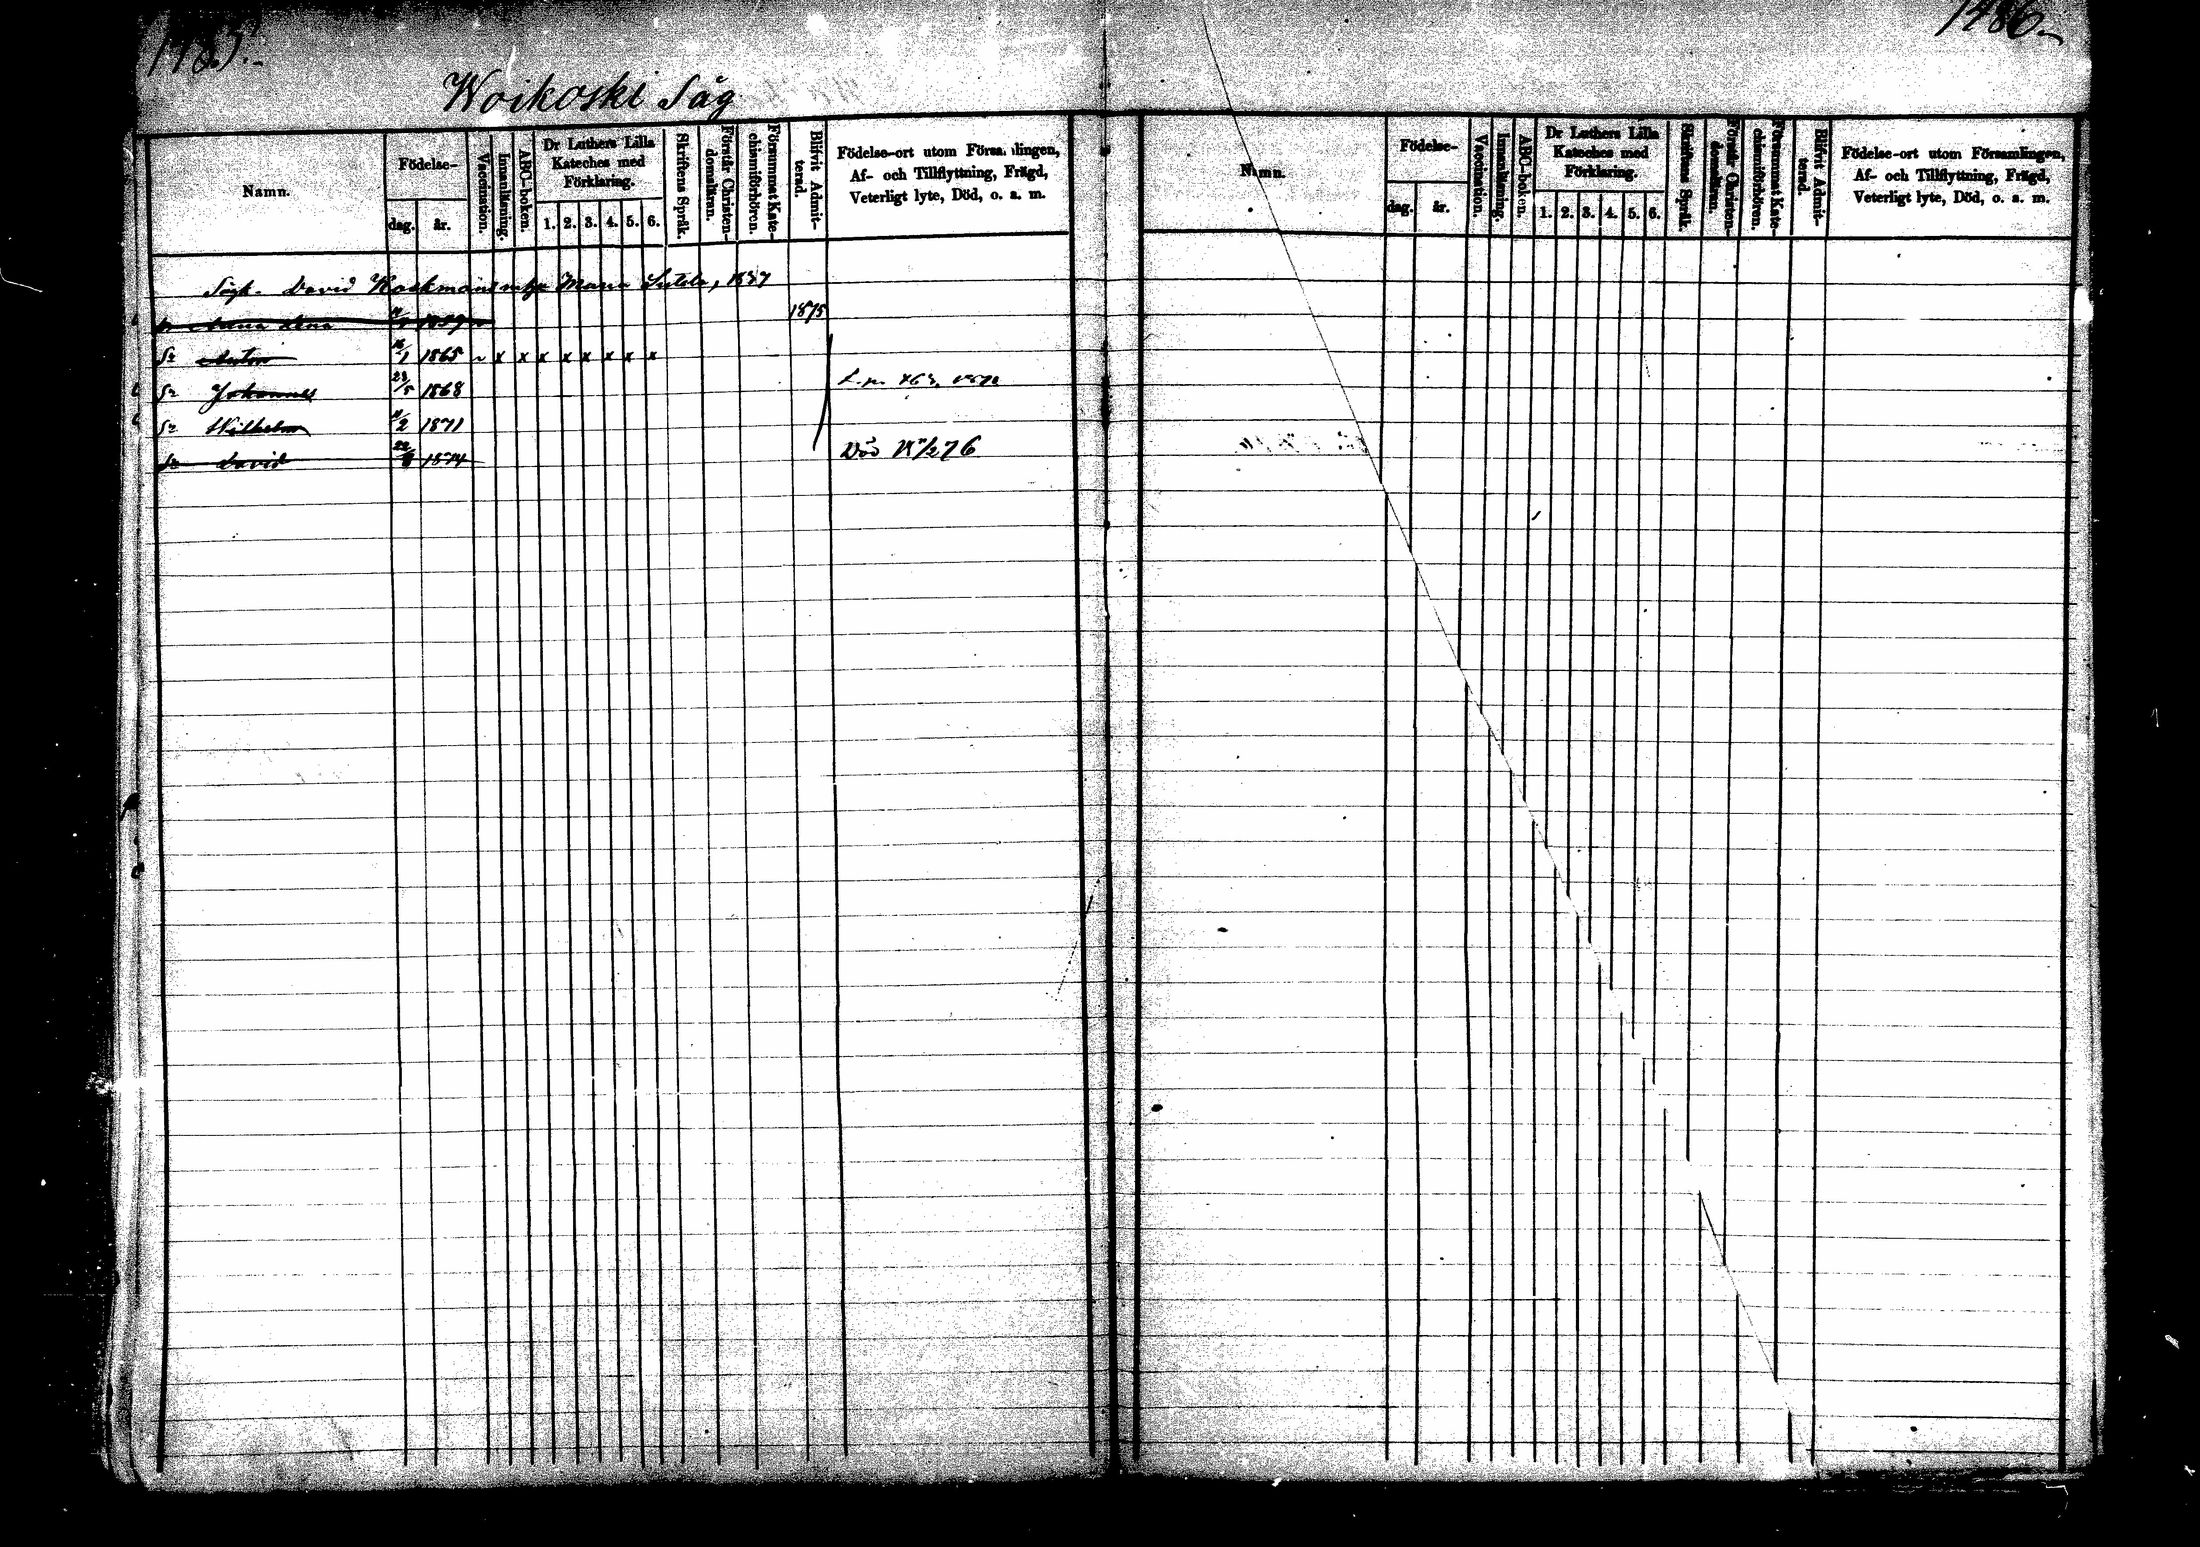 1485.
1486.
Woikoski Såg
Namn. Födelse- dag. år. Vaccination. Innanläsning. ABC-boken. Dr Luthers Lilla Kateches med Förklaring. 1. 2. 3. 4. 5. 6. Skriftens Språk. Förstår Christendomsläran. Försummat Katechismiförhören. Blifvit Admitterad. Födelse-ort utom Församlingen, Af- och Tillflyttning, Frägd, Veterligt lyte, Död, o. a. m.
David Maria 1837
Anna Lena 1859 1875
Sr Anton 16/1 1865 x x x x x x x x
Sr Johannes 23/5 1868
Sr Wilhelm 11/2 1871
Sr David 1874 Död 76
Namn. Födelse- dag. år. Vaccination. Innanläsning. ABC-boken. Dr Luthers Lilla Kateches med Förklaring. 1. 2. 3. 4. 5. 6. Skriftens Språk. Förstår Christendomsläran. Försummat Katechismiförhören. Blifvit Admitterad. Födelse-ort utom Församlingen, Af- och Tillflyttning, Frägd, Veterligt lyte, Död, o. a. m.